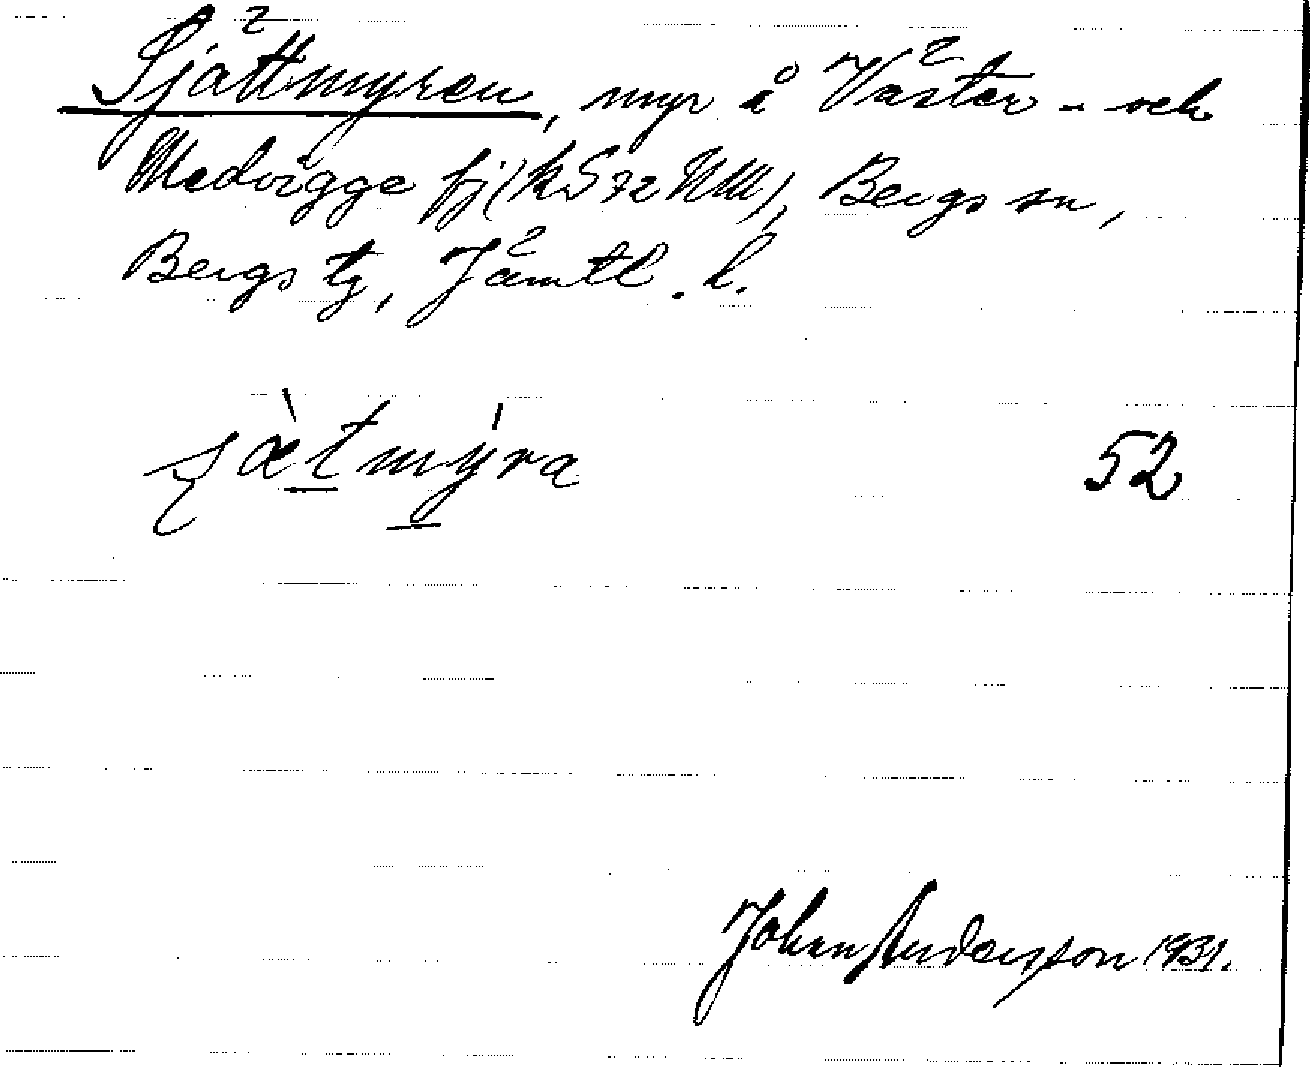 Sjättmyren, myr å Väster- och
Medvigge fj (kS 72 NW), Bergs sn,
Bergs tg, Jämtl. l.
ʂæ̀tmýra 52
Johan Andersson 1931.